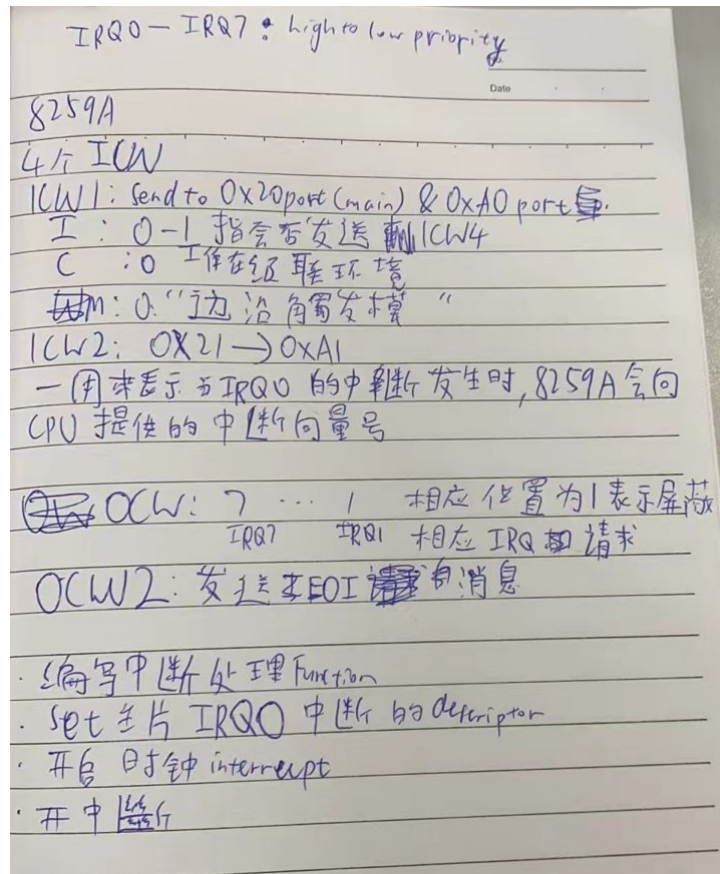 IRQ0 — IRQ7: high to low priority
Date
8259A
4个 ICW
ICW1: Send to 0x20port(main) & 0xA0 port
I: 0-1 指会否发送 ICW4
C: 0 工作在级联环境
M: 0. "边沿角蜀发模"
ICW2: 0X21→0xA1
一用来表示当IRQ0的中断发生时,8259A会向
CPU提供的中断向量号
OCW: 7 ... 1 相应位置为1表示屏蔽
IRQ7 IRQ1 相应 IRQ 请求
OCW2: 发送 EOI 消息
· 编写中断处理Function
· Set 主片 IRQ0 中断的descriptor
· 开启 时钟 interrupt
· 开中断